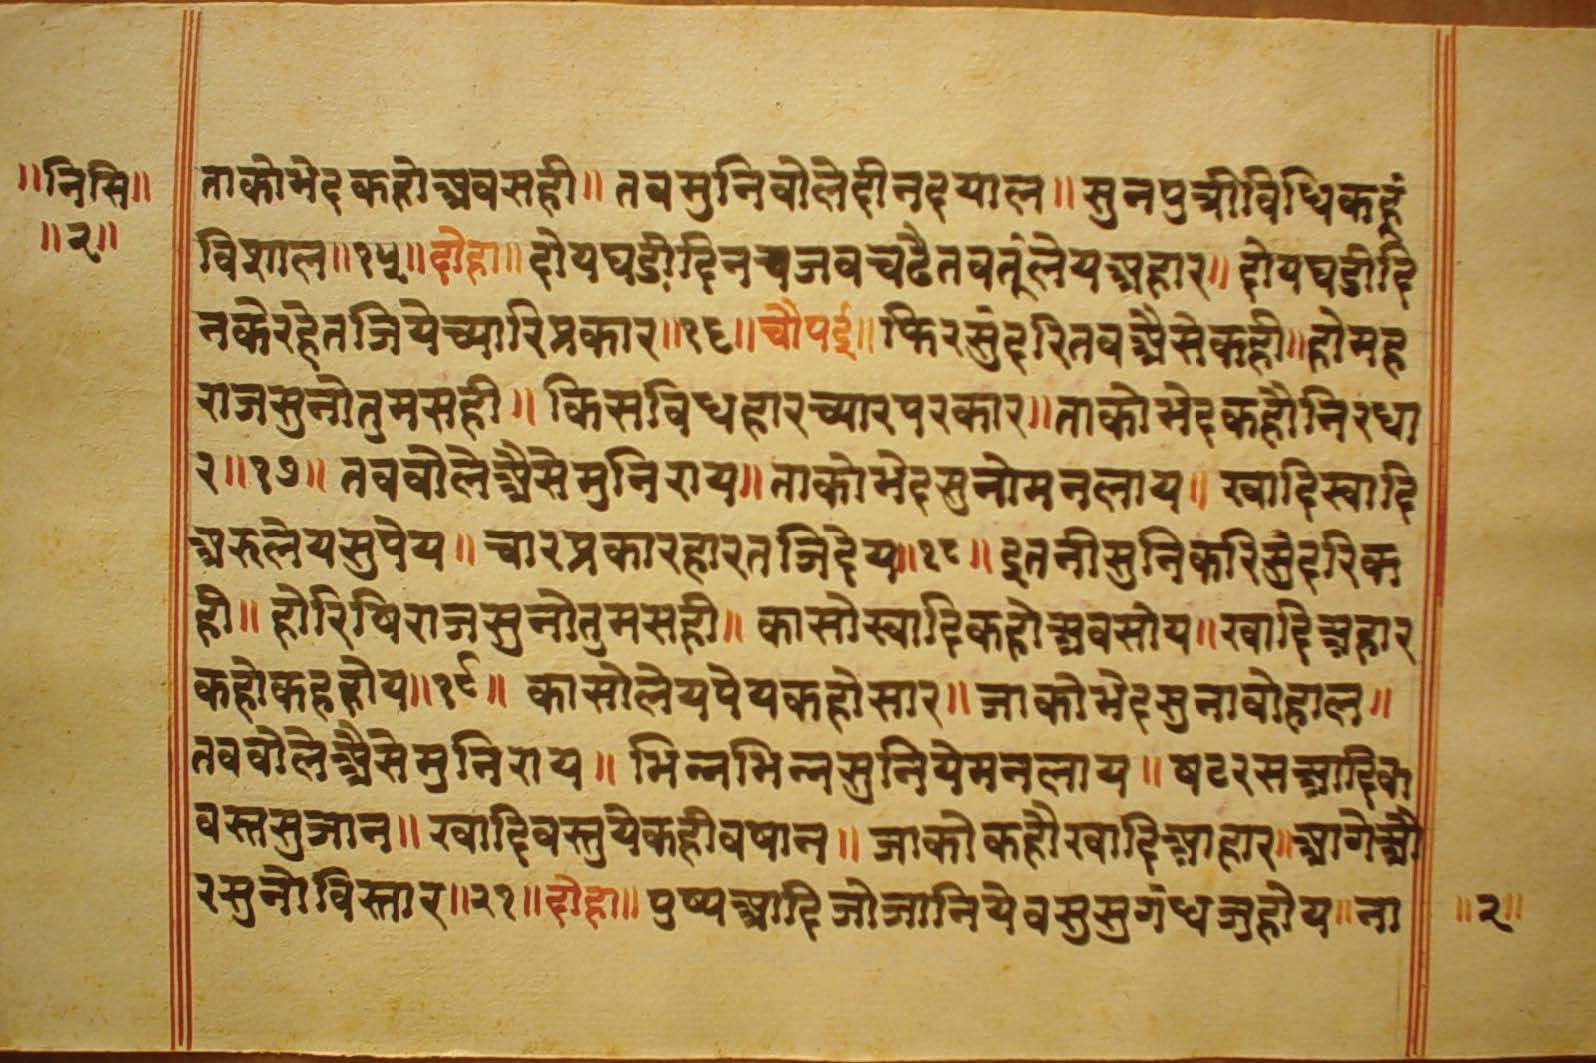 ॥निसि॥
॥२॥
ताकोभेदकहोअवसही॥ तवमुनिवोलेदीनदयाल॥ सुनपुत्रीविधिकहूं
विशाल॥१५॥दोहा॥ दोयघडीदिनचजवचढैतवतुंलेयअहार॥ दोयघडीदि
नकेरहेतजियेच्यारिप्रकार॥१६॥चौपई॥ फिरसुंदरितवअैसेकही॥होमह
राजसुनोतुमसही॥ किसविधहारच्यारपरकार॥ताकोभेदकहौनिरधा
र॥१७॥ तववोलेअैसेमुनिराय॥ताकोभेदसुनोमनलाय॥ खादिस्वादि
अरुलेयसुपेय॥ चारप्रकारहारतजिदेय॥१८॥ इतनीसुनिकरिसुंदरिक
ही॥ होरिषिराजसुनोतुमसही॥ कासोस्वादिकहोअवसोय॥खादिअहार
कहोकहहोय॥१९॥ कासोलेयपेयकहोसार॥ जाकोभेदसुनावोहाल॥
तववोलेअैसेमुनिराय॥ भिन्नभिन्नसुनियेमनलाय॥ षटरसआदिक
वस्तसुजान॥ खादिवस्तुयेकहीवषान॥ जाकोकहौखादिआहार॥आगेऔ
रसुनोविस्तार॥२१॥दोहा॥ पुष्पआदिजोजानियेवसुसुगंधजुहोय॥ना
॥२॥